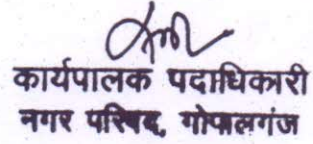 कार्यपालक पदाधिकारी
नगर परिषद, गोपालगंज